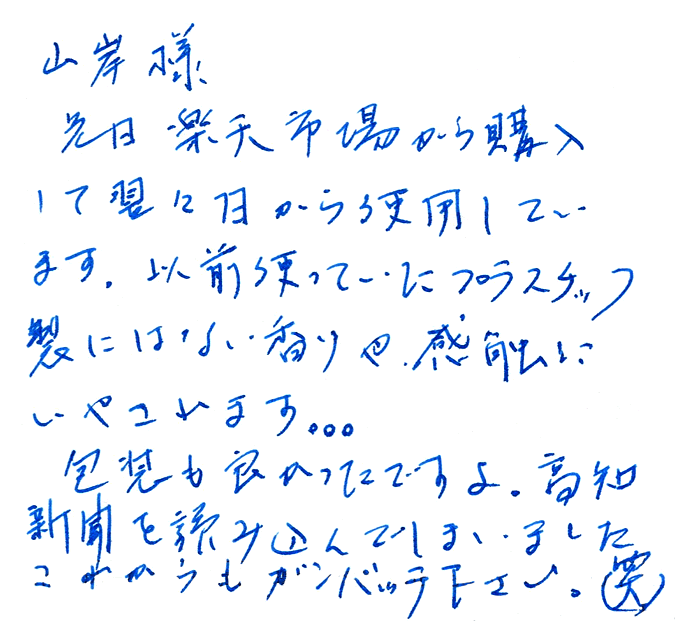 山岸様
先日楽天市場から購入
して翌々日から使用してい
ます。以前使っていたプラスチック
製にはない香りや、感触に
いやされます...
包装も良かったですよ。高知
新聞を読み込んでしまいました
これからもガンバッテ下さい。(笑)